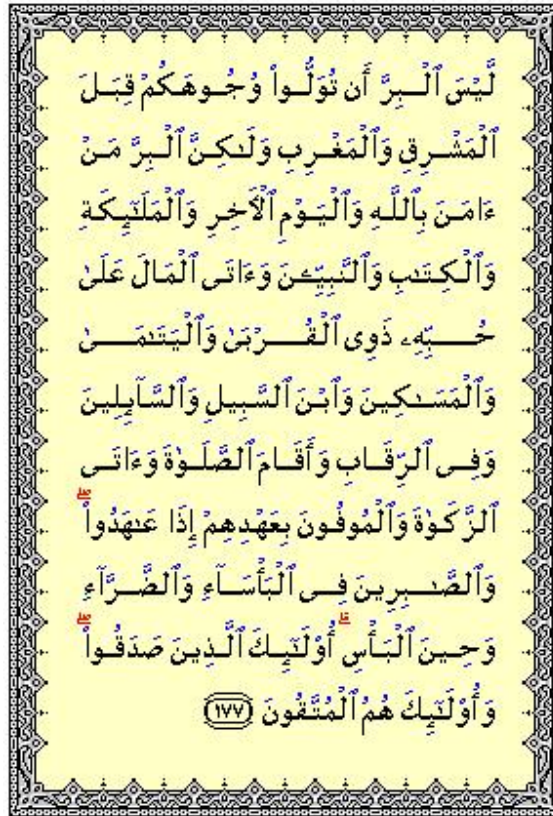 لَّيْسَ ٱلْبِرَّ أَن تُوَلُّوا۟ وُجُوهَكُمْ قِبَلَ
ٱلْمَشْرِقِ وَٱلْمَغْرِبِ وَلَٰكِنَّ ٱلْبِرَّ مَنْ
ءَامَنَ بِٱللَّهِ وَٱلْيَوْمِ ٱلْأَخِرِ وَٱلْمَلَٰٓئِكَةِ
وَٱلْكِتَٰبِ وَٱلنَّبِيِّۦنَ وَءَاتَى ٱلْمَالَ عَلَىٰ
حُبِّهِۦ ذَوِى ٱلْقُرْبَىٰ وَٱلْيَتَٰمَىٰ
وَٱلْمَسَٰكِينَ وَٱبْنَ ٱلسَّبِيلِ وَٱلسَّآئِلِينَ
وَفِى ٱلرِّقَابِ وَأَقَامَ ٱلصَّلَوٰةَ وَءَاتَى
ٱلزَّكَوٰةَ وَٱلْمُوفُونَ بِعَهْدِهِمْ إِذَا عَٰهَدُوا۟ ۖ
وَٱلصَّٰبِرِينَ فِى ٱلْبَأْسَآءِ وَٱلضَّرَّآءِ
وَحِينَ ٱلْبَأْسِ ۗ أُو۟لَٰٓئِكَ ٱلَّذِينَ صَدَقُوا۟ ۖ
وَأُو۟لَٰٓئِكَ هُمُ ٱلْمُتَّقُونَ ١٧٧